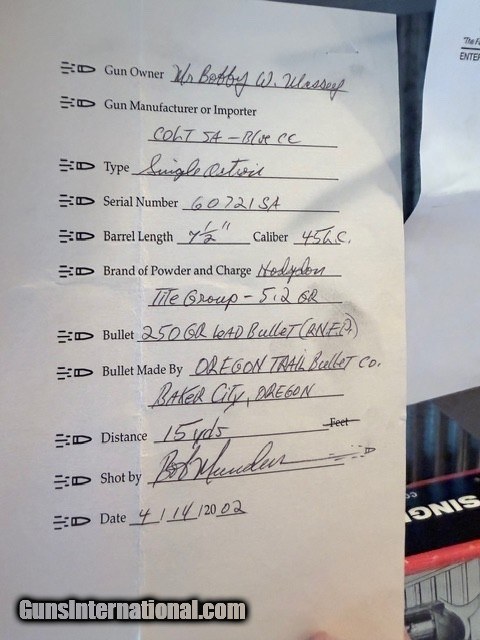 Gun Owner Mr Bobby W. Massey
Gun Manufacturer or Importer
COLT SA - Blue CC
Type Single Action
Serial Number 60721SA
Barrel Length 7 1/2" Caliber 45L.C.
Brand of Powder and Charge Hodgdon
Tite Group - 5.2 GR
Bullet 250GR LEAD Bullet (RNFP)
Bullet Made By OREGON TRAIL Bullet Co.
BAKER City, OREGON
Distance 15 yds Feet
Shot by Bob Munden
Date 4/14/2002
"The Fa
ENTER
SINGL
CO
GunsInternational.com